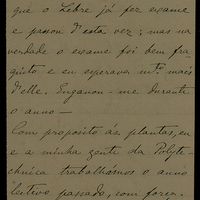 que o Lebre já fez exame
e passou d'esta vez; mas na
verdade o exame foi bem fra-
quito e eu esperava mto mais
d'elle. Enganou-me durante
o anno—
Com proposito ás plantas, eu
e a minha gente da Polyte-
chnica trabalhamos o anno
lectivo passado, com força.